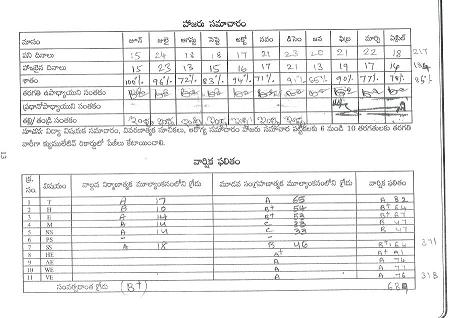 హాజరు సమాచారం
మాసం జూన్ జులై ఆగస్టు సెప్టె అక్టో నవం డిసెం జన ఫిబ్ర మార్చి ఏప్రిల్
పని దినాలు 15 24 18 18 17 21 23 20 21 22 18 217
హాజరైన దినాలు 15 23 13 15 16 17 21 13 19 17 14
శాతం 100% 96% 72% 83% 94% 71% 90% 77% 78% 85%
తరగతి ఉపాధ్యాయుని సంతకం
ప్రధానోపాధ్యాయుని సంతకం
తల్లి/తండ్రి సంతకం
సూచన విద్యా విషయక సమాచారం, వివరణాత్మక సూచికలు, ఆరోగ్య సమాచారం హాజరు సమాచార పట్టికలకు 6 నుండి 10 తరగతులకు తరగతి
వారీగా క్యుములేటివ్ రికార్డులో పేజీలు కేటాయించాలి.
13
వార్షిక ఫలితం
క్ర. సం. విషయం నాల్గవ నిర్మాణాత్మక మూల్యాంకనంలోని గ్రేడు మూడవ సంగ్రహణాత్మక మూల్యాంకనంలోని గ్రేడు వార్షిక ఫలితం
1 T A 17 A 65 A 82
2 H B 10 B+ 54 B+ 64
3 E A 14 B+ 53 B+ 67
4 M A 14 C 33 B 47
5 NS A 14 C 33 B 47
6 PS - - -
7 SS A 18 B 46 B+ 64 371
8 HE A+ A+ 91
9 AE A A 74
10 WE A A 77
11 VE A A 76 318
సంవత్సరాంత గ్రేడు (B+) 689